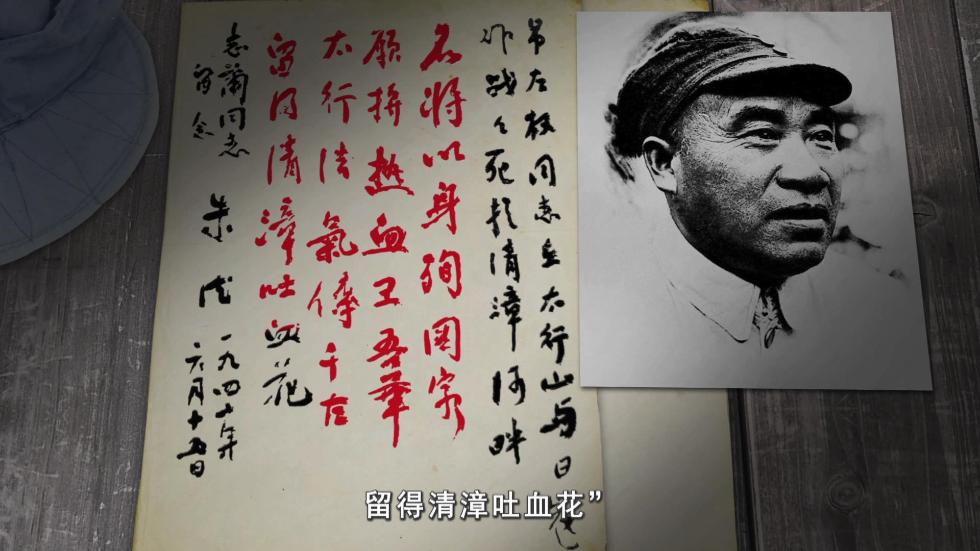 吊左权同志在太行山与日寇
作战々死於清漳河畔
名将以身殉国家
願拼热血卫吾華
太行浩氣傳千古
留得清漳吐血花
志蘭同志
留念
朱德
一九四 年
六月十五日
留得清漳吐血花”